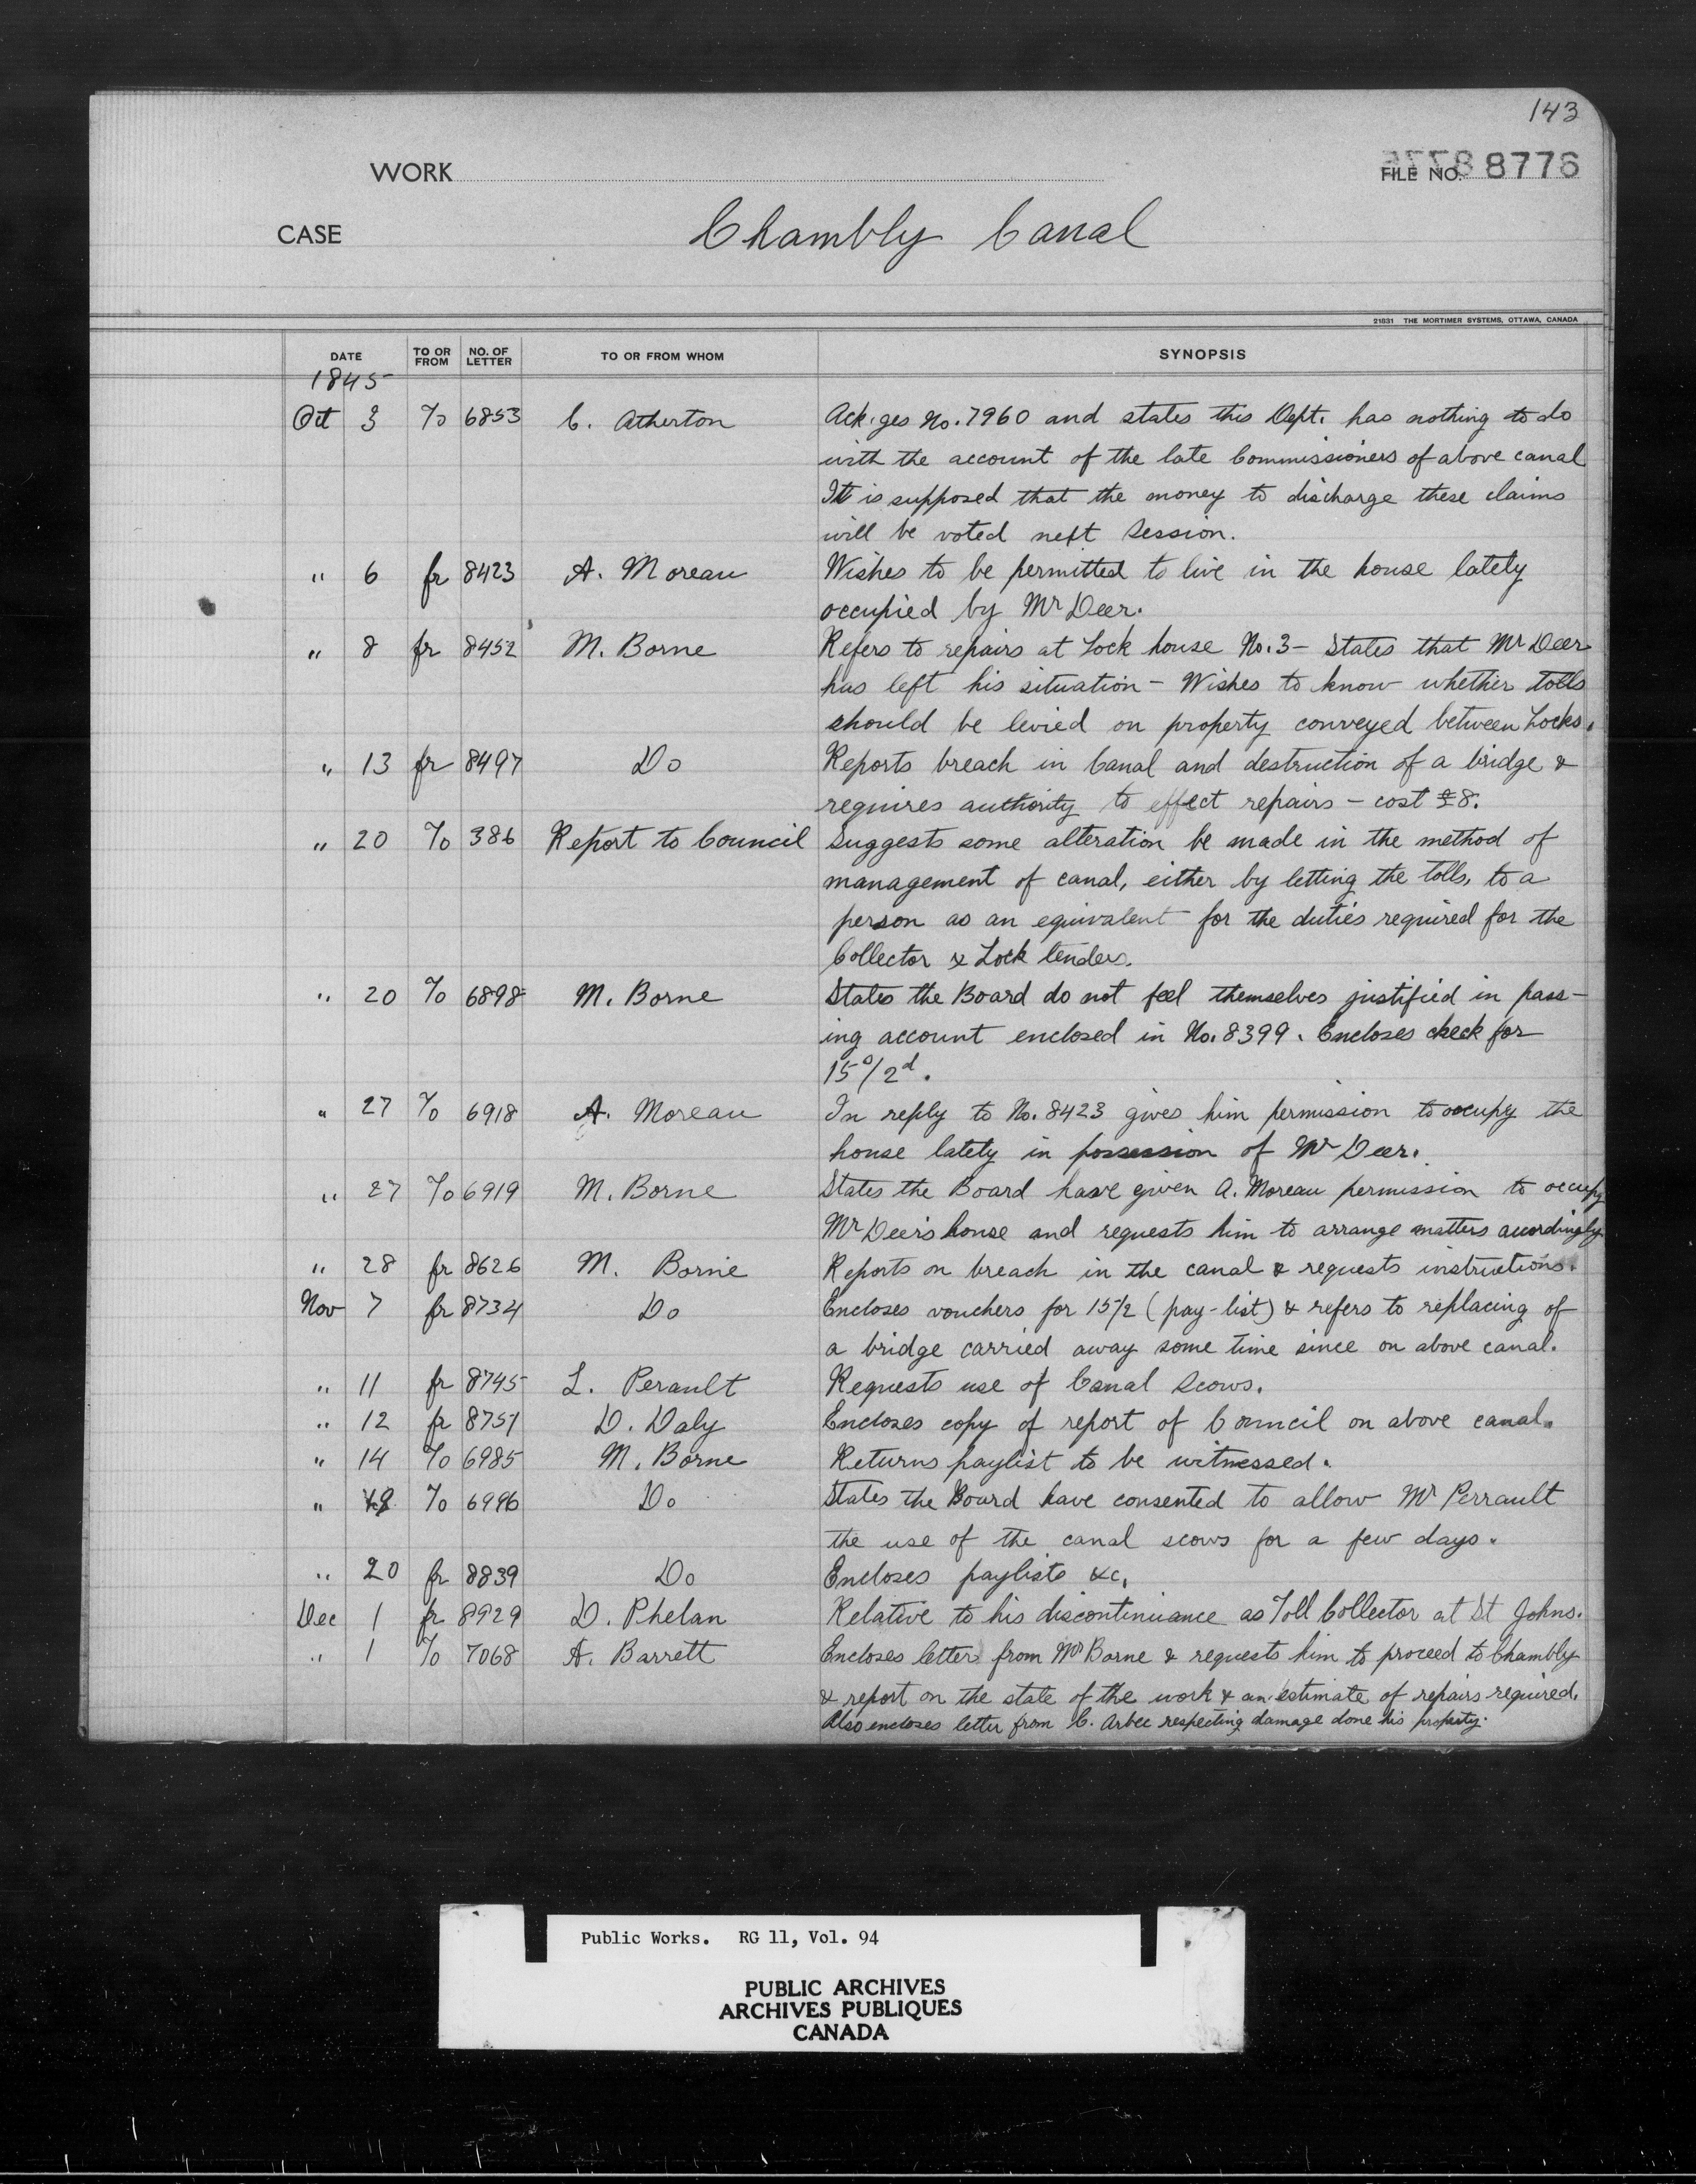 143
WORK
FILE NO. 8776
CASE Chambly Canal
21831 THE MORTIMER SYSTEMS, OTTAWA, CANADA
DATE TO OR FROM NO. OF LETTER TO OR FROM WHOM SYNOPSIS
1845
Oct 3 To 6853 C. Atherton Ack.ges No. 7960 and states this Dept. has nothing to do
with the account of the late Commissioners of above canal
It is supposed that the money to discharge these claims
will be voted next Session.
" 6 fr 8423 A. Moreau Wishes to be permitted to live in the house lately
occupied by Mr Deer.
" 8 fr 8452 M. Borne Refers to repairs at Lock house No. 3 - States that Mr Deer
has left his situation - Wishes to know whether tolls
should be levied on property conveyed between Locks.
" 13 fr 8497 Do Reports breach in Canal and destruction of a bridge &
requires authority to effect repairs - cost £8.
" 20 To 386 Report to Council Suggests some alteration be made in the method of
management of canal, either by letting the tolls, to a
person as an equivalent for the duties required for the
Collector & Lock tenders.
" 20 To 6898 M. Borne States the Board do not feel themselves justified in pass-
ing account enclosed in No. 8399. Encloses check for
15s/2d.
" 27 To 6918 A. Moreau In reply to No. 8423 gives him permission to occupy the
house lately in possession of Mr Deer.
" 27 To 6919 M. Borne States the Board have given A. Moreau permission to occupy
Mr Deer's house and requests him to arrange matters accordingly
" 28 fr 8626 M. Borne Reports on breach in the canal & requests instructions.
Nov 7 fr 8734 Do Encloses vouchers for 15/2 (pay-list) & refers to replacing of
a bridge carried away some time since on above canal.
" 11 fr 8745 L. Perault Requests use of Canal Scows.
" 12 fr 8751 D. Daly Encloses copy of report of Council on above canal.
" 14 To 6985 M. Borne Returns paylist to be witnessed.
" To 6996 Do States the Board have consented to allow Mr Perrault
the use of the canal scows for a few days.
" 20 fr 8839 Do Encloses paylists &c.
Dec 1 fr 8929 D. Phelan Relative to his discontinuance as Toll Collector at St Johns.
" 1 To 7068 A. Barrett Encloses letter from Mr Borne & requests him to proceed to Chambly
& report on the state of the work & an estimate of repairs required.
Also encloses letter from C. Arbec respecting damage done his property.
Public Works. RG 11, Vol. 94
PUBLIC ARCHIVES
ARCHIVES PUBLIQUES
CANADA